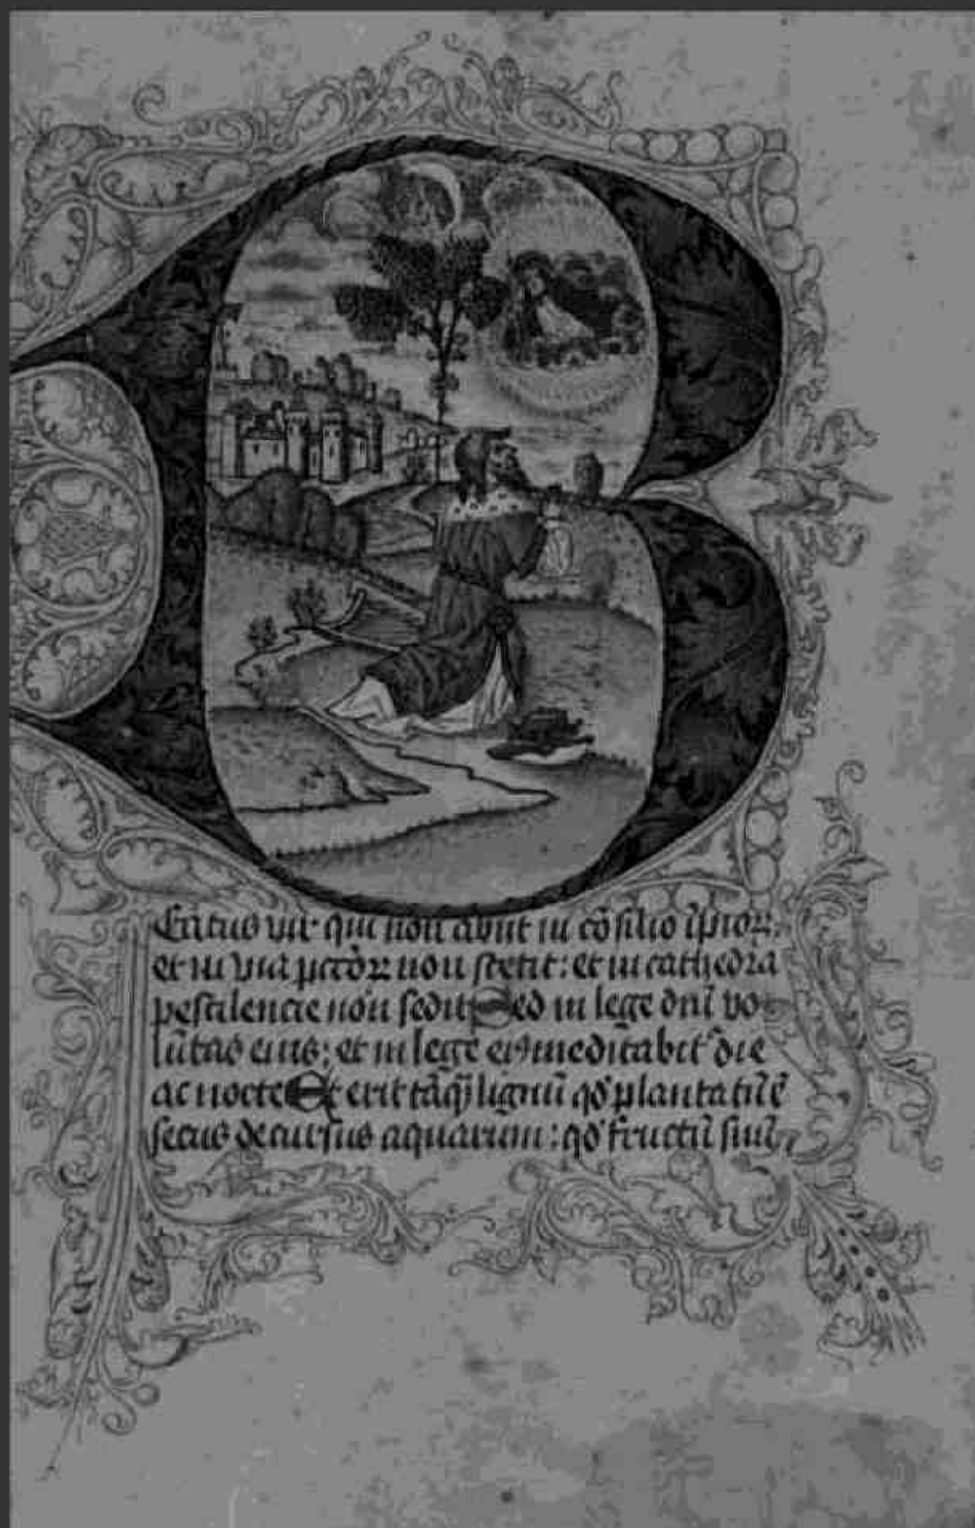 B
Eatus vir qui non abiit in cōsilio īpioꝝ:
et in via pctōꝝ non stetit: et in cathedra
pestilencie non sedit Sed in lege dnī vo
lūtas eius: et in lege eiꝰ meditabit᷑ die
ac nocte Et erit tāq̄ lignū qd̓ plantatū ē
secus decursus aquarum: qd̓ fructū suū